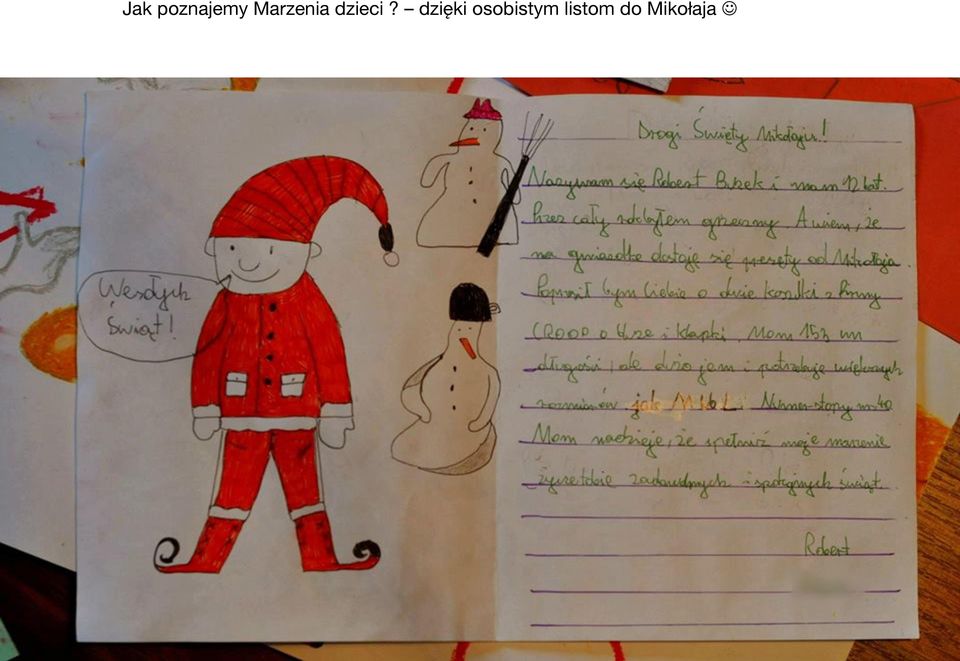 Jak poznajemy Marzenia dzieci ? – dzięki osobistym listom do Mikołaja ☺
Wesołych
Świąt!
Drogi Święty Mikołaju!
Nazywam się Robert Buzek i mam 12 lat.
Przez cały rok byłem grzeczny. A wiem, że
na gwiazdkę dostaję się prezęty od Mikołaja.
Poprosił bym Ciebie o dwie koszulki z firmy
CROOP o bluze i klapki. Mam 153 cm
długości, ale dużo jem i potrzebuję większych
rozmiarów jak M lub L. Numer stopy 40
Mam nadzieję, że spełnisz moje marzenie
życzę tobie i spokojnych świąt.
Robert